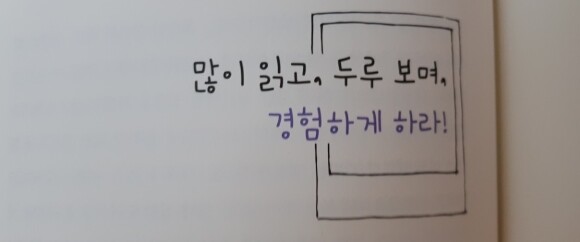 많이 읽고, 두루 보며,
경험하게 하라!